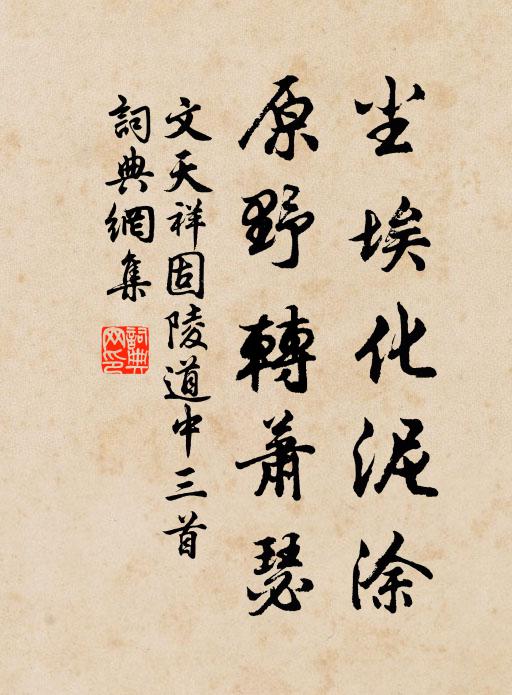 尘埃化泥涂
原野轉蕭瑟
文天祥固陵道中三首
詞典網集
詞典
网印